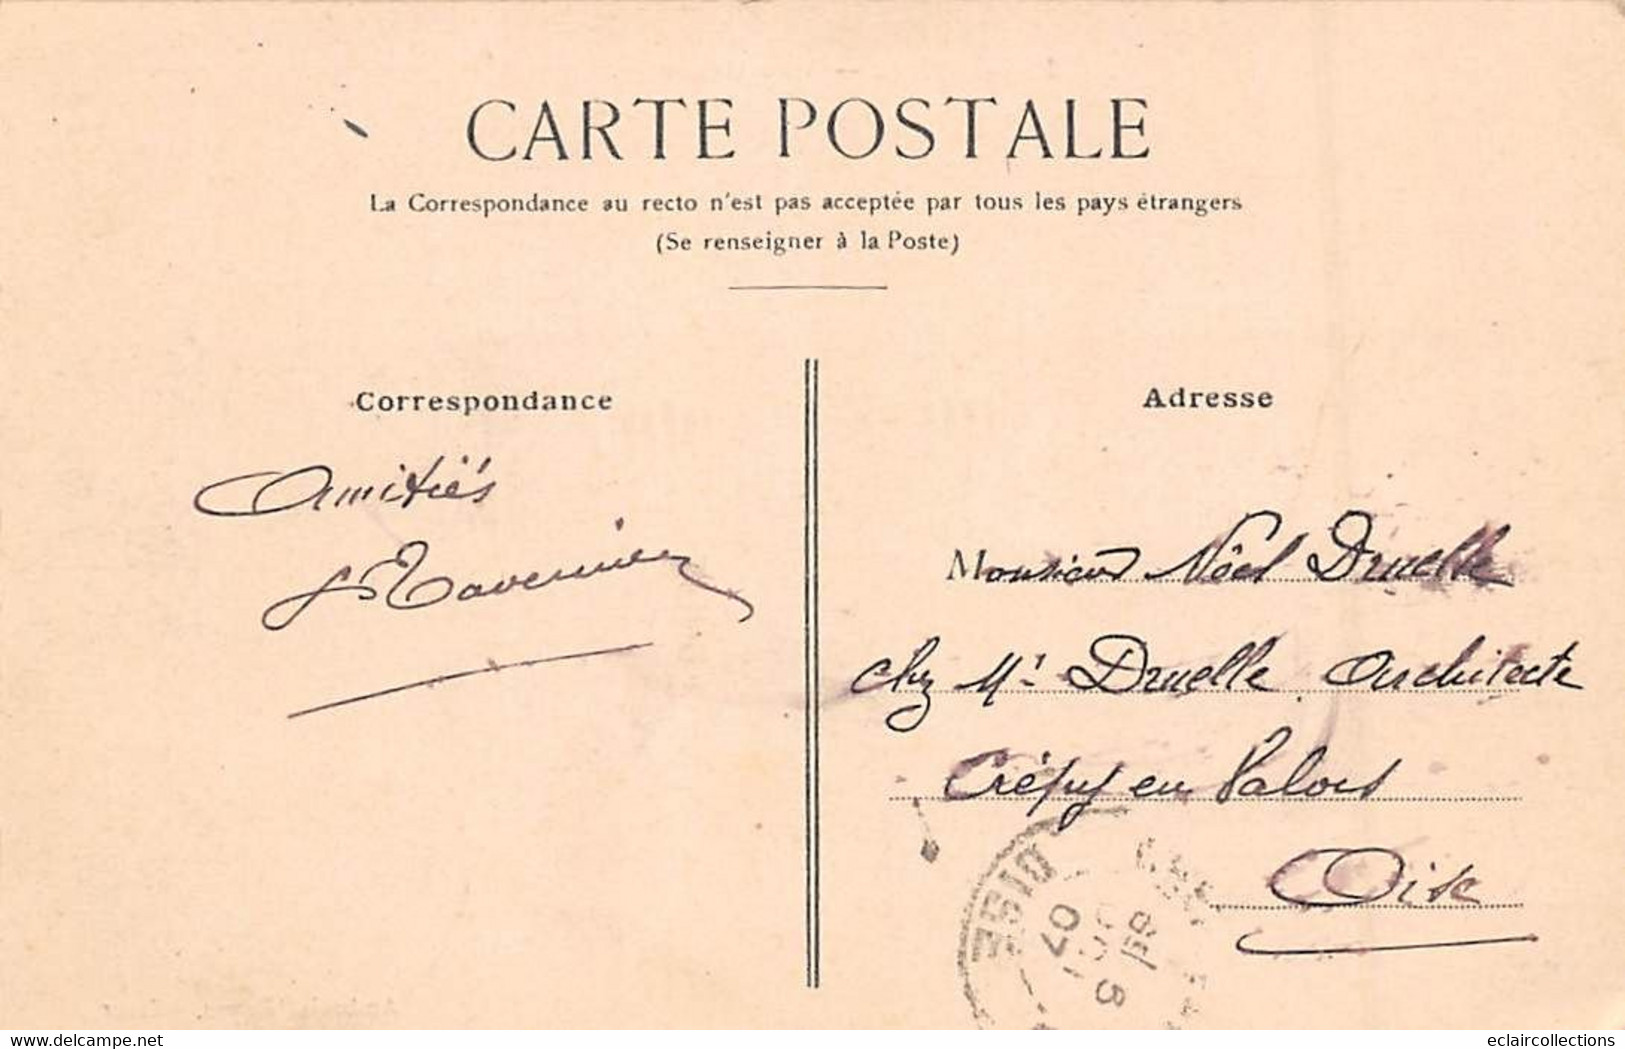 CARTE POSTALE
La Correspondance au recto n'est pas acceptée par tous les pays étrangers
(Se renseigner à la Poste)
Correspondance
Amitiés
Tavernier
Adresse
Monsieur Noël Druelle
chez Mr Druelle Architecte
Crépy en Valois
Oise
OISE
07
www.delcampe.net
eclaircollections